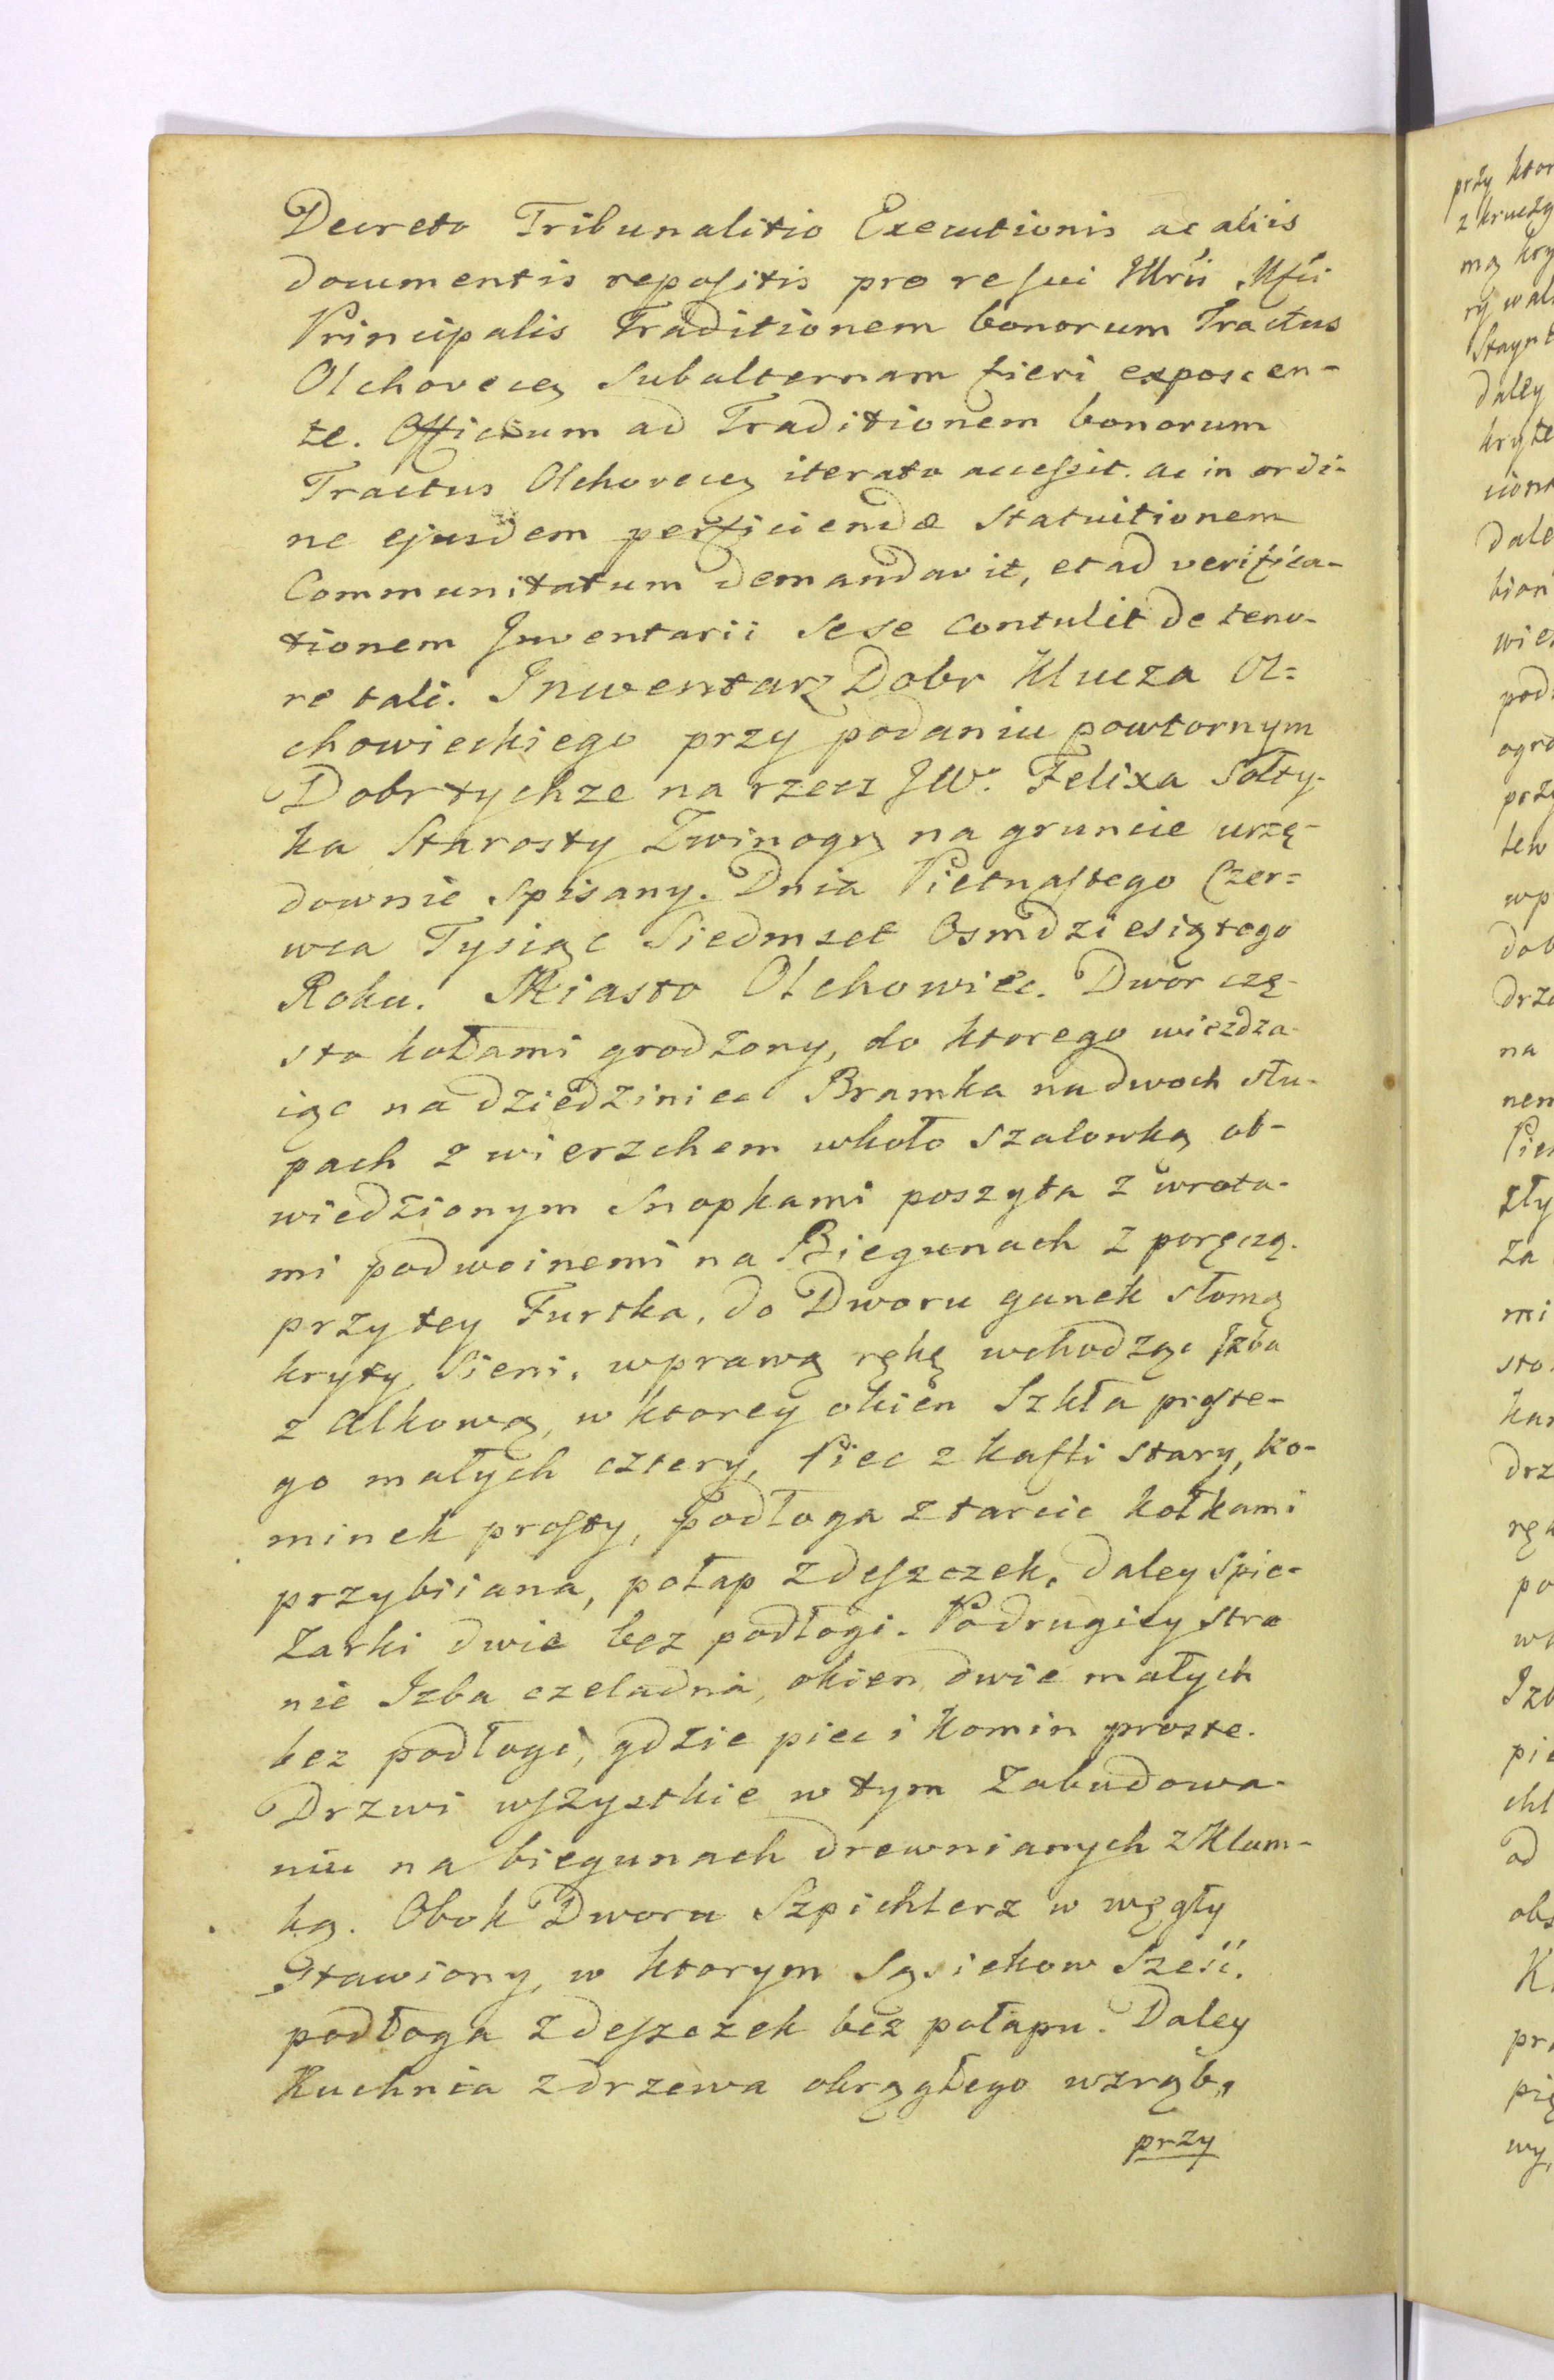 Decreto Tribunalitio Executionis ac aliis
documentis repositis pro re sui Illrii Mfci
Principalis Traditionem bonorum Tractus
Olchovecen Subalternam fieri exposcen-
te. Officium ad Traditionem bonorum
Tractus Olchovecen iterato accessit. ac in ordi-
ne ejusdem perficiendæ Statuitionem
Communitatum demandavit, et ad verifica-
tionem Inventarii sese contulit de teno-
re tali. Inwentarz Dobr Klucza Ol=
chowieckiego przy podaniu powtornym
Dobr tychze na rzecz JW. Felixa Sołty-
ka Starosty Zwinogr na gruncie urzę-
downie spisany. Dnia Pietnastego Czer=
wca Tysiąc Siedmset Osmdziesiątego
Roku. Miasto Olchowiec. Dwor czę-
sto kołami grodzony, do ktorego wiezdza-
iąc na dziedziniec Bramka na dwoch słu-
pach z wierzchem wkoło szalowką ob-
wiedzionym Snopkami poszyta z wrota-
mi podwoinemi na Biegunach z poręczą.
przy tey Furtka, do Dworu ganek słomą
kryty, Sieni, w prawą rękę wchodząc Izba
z Alkową, w ktorey okien Szkła proste-
go małych cztery, Piec z kafli stary, ko-
minek prosty, podłoga z tarcic kołkami
przybiiana, połap z deszczek, daley spi-
zarki dwie bez podłogi. Po drugiey stro
nie Izba czeladna, okien dwie małych
bez podłogi, gdzie piec i komin proste.
Drzwi wszystkie w tym Zabudowa-
niu na biegunach drewnianych z Klam-
ką. Obok Dworu Szpichlerz w węgły
Stawiony, w ktorym Sąsiekow Sześć.
podłoga z deszczek bez połapu. Daley
Kuchnia z drzewa okrągłego w zrąb,
przy